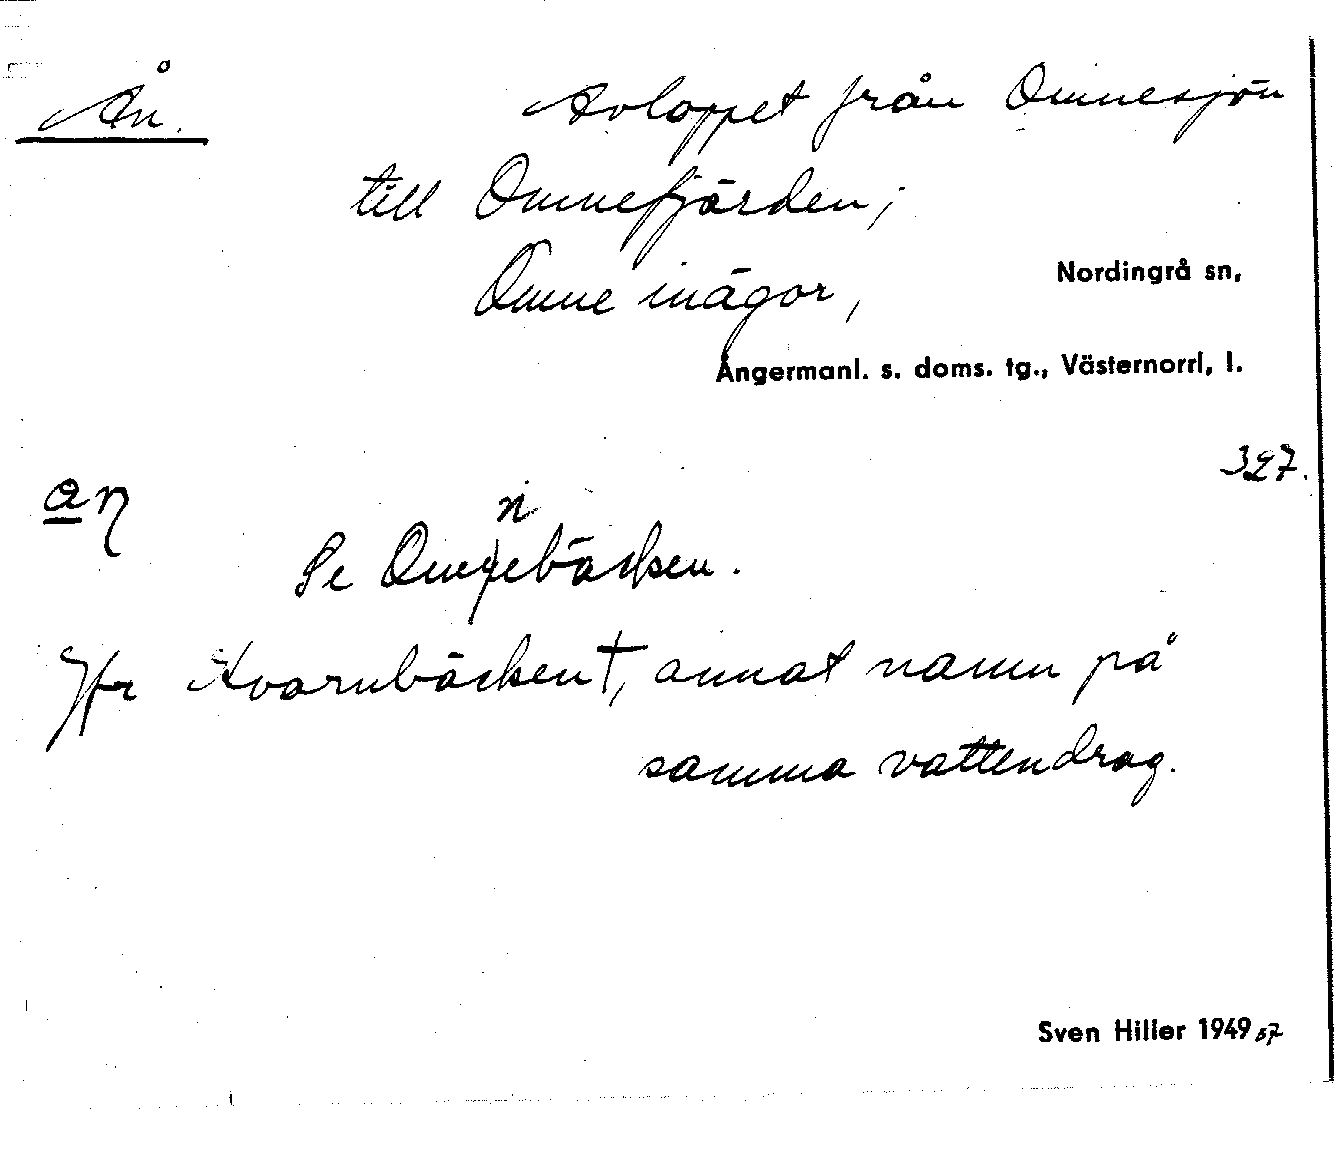 Ån. Avloppet från Omnesjön
till Omnefjärden;
Omne inägor, Nordingrå sn,
Ångermanl. s. doms. tg., Västernorrl. l.
327.
Se Omnebäcken.
Jfr Kvarnbäcken†, annat namn på
samma vattendrag.
Sven Hiller 1949 57